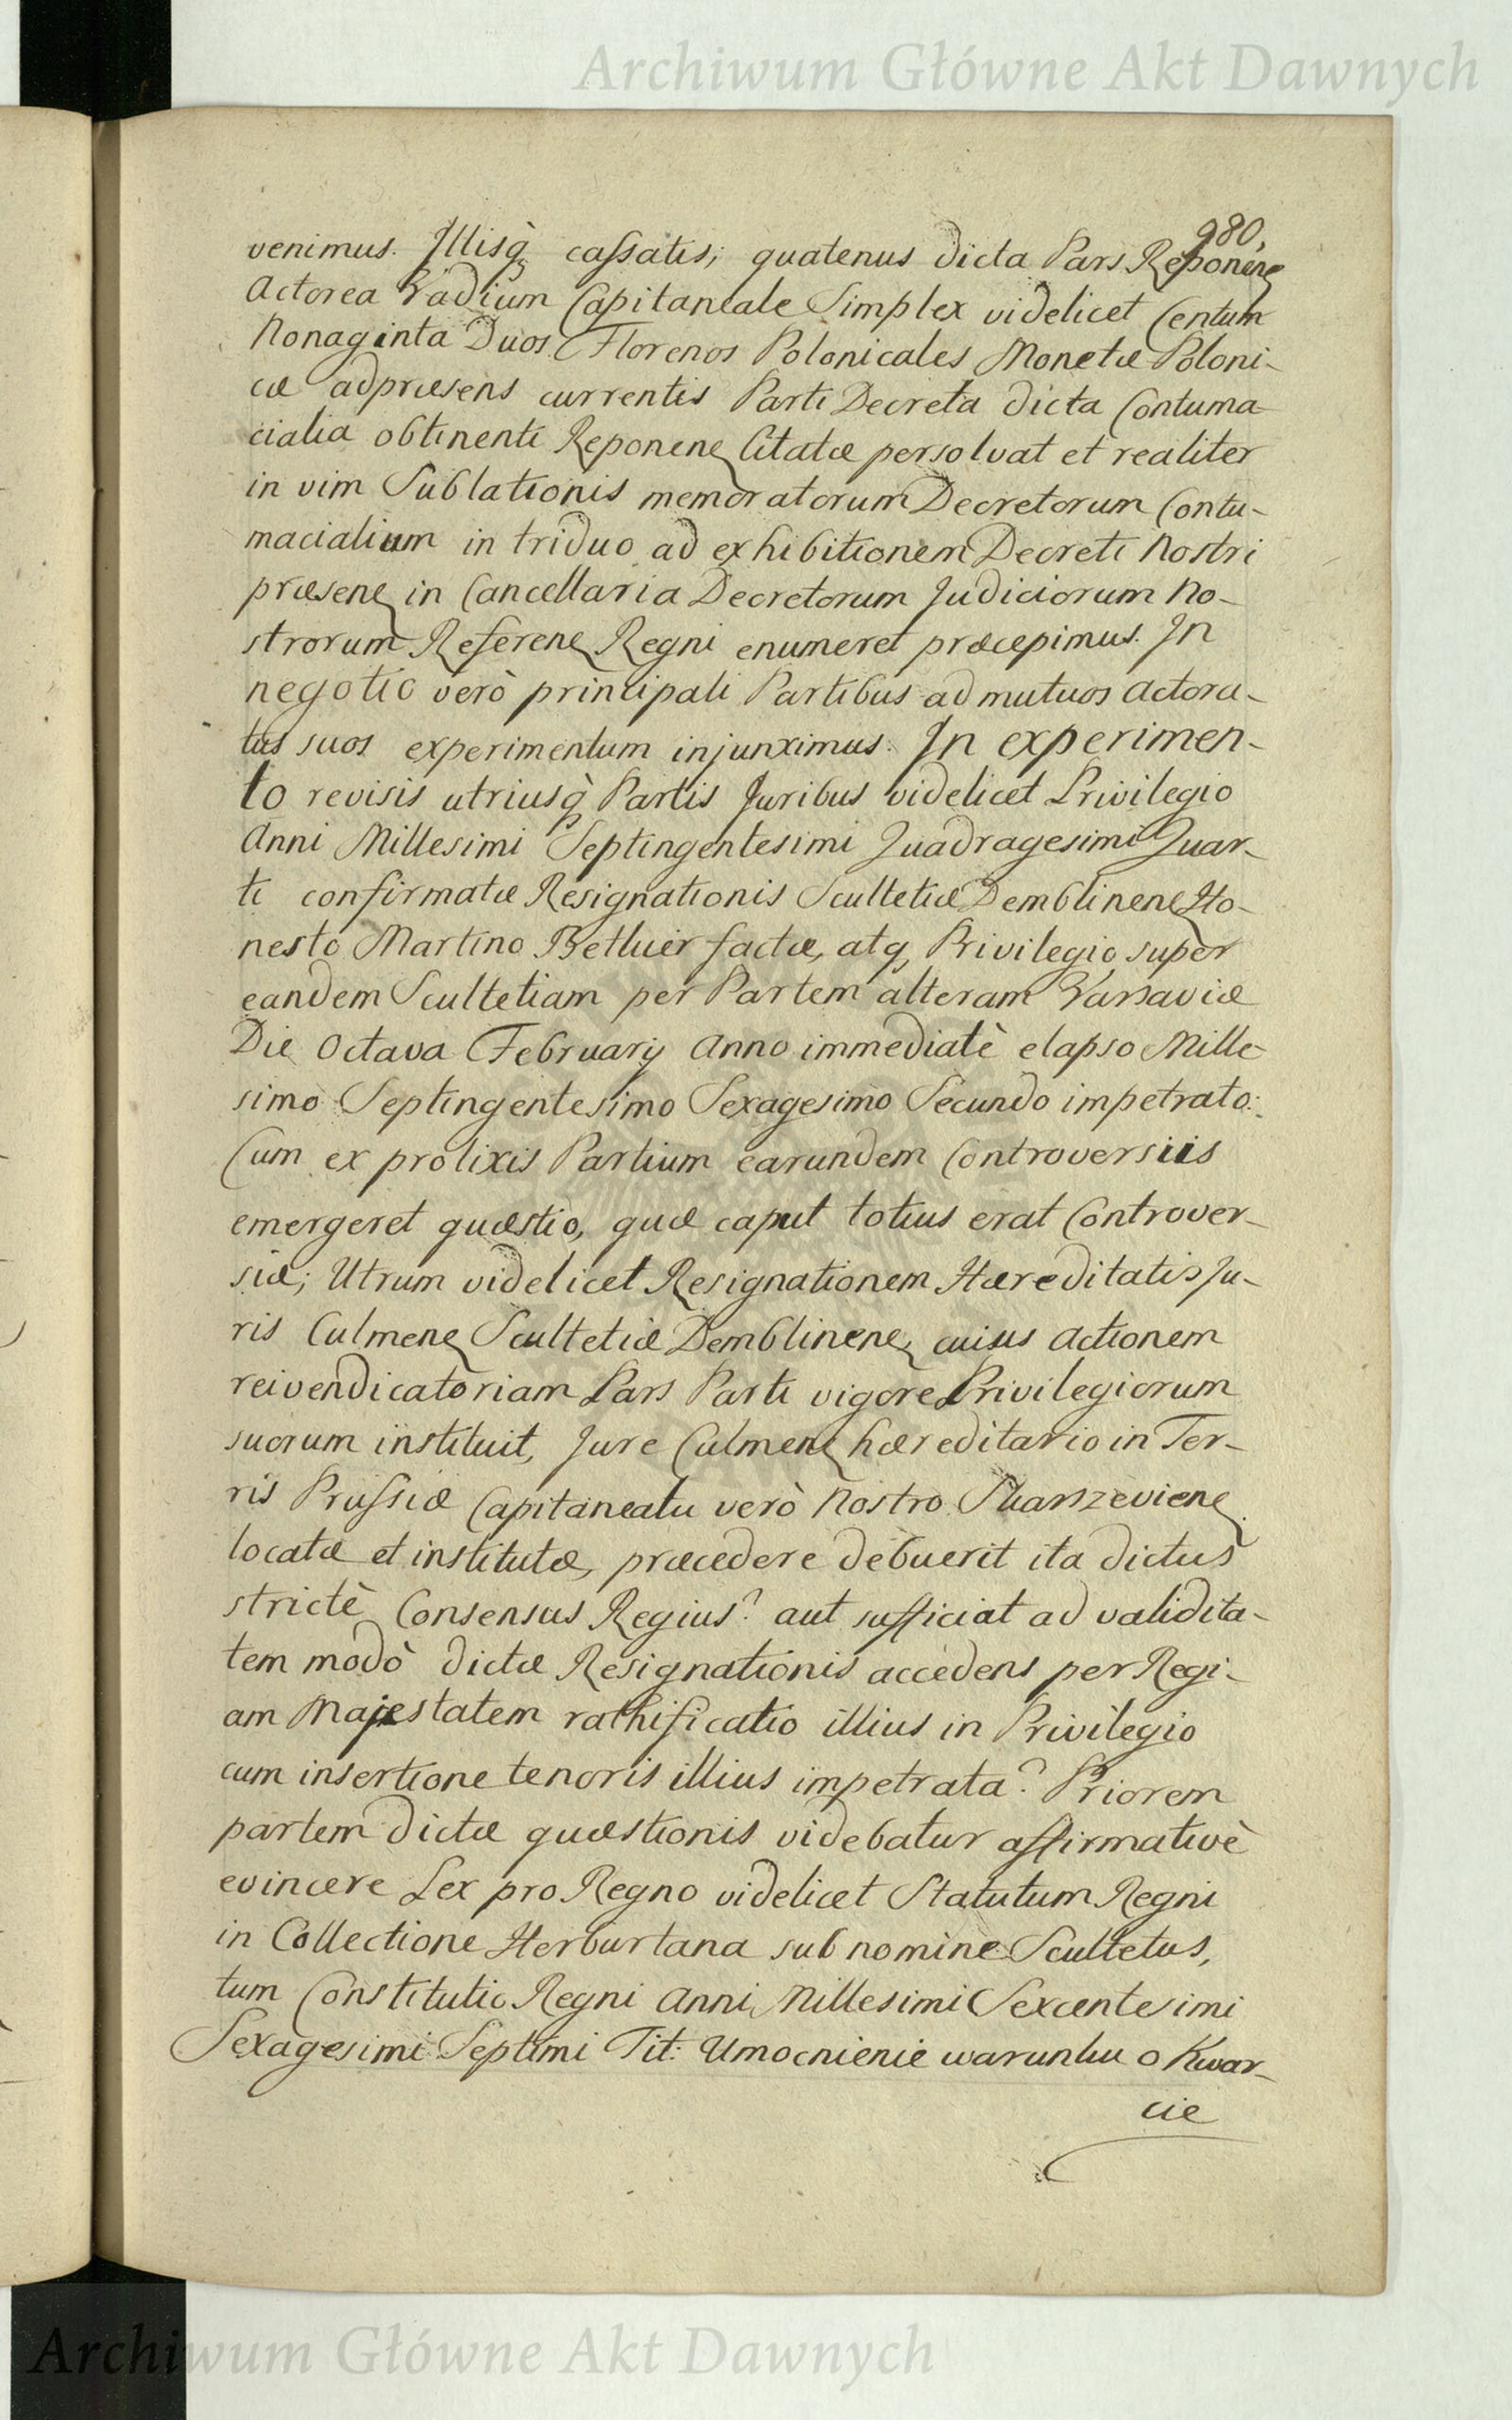 Archiwum Główne Akt Dawnych
980.
venimus. Illisq̀ cassatis; quatenus dicta Pars Reponen
Actorea Vadium Capitaneale Simplex videlicet Centum
Nonaginta Duos Florenos Polonicales Monetæ Poloni-
cæ adpræsens currentis Parti Decreta dicta Contuma
cialia obtinenti Reponen Citatæ persolvat et realiter
in vim Sublationis memoratorum Decretorum Contu-
macialium in triduo ad exhibitionem Decreti Nostri
præsen in Cancellaria Decretorum Judiciorum No-
strorum Referen Regni enumeret præcepimus. In
negotio verò principali Partibus ad mutuos Actora-
tus suos experimentum injunximus. In experimen-
to revisis utriusq̀ Partis Juribus videlicet Privilegio
Anni Millesimi Septingentesimi Quadragesimi Quar-
ti confirmatæ Resignationis Scultetiæ Demblinen Ho-
nesto Martino Betluier factæ, atq, Privilegio super
eandem Scultetiam per Partem alteram Varsaviæ
Die Octava February Anno immediatè elapso Mille-
simo Septingentesimo Sexagesimo Secundo impetrato:
Cum ex prolixis Partium earundem Controversiis
emergeret quæstio, quæ caput totius erat Controver-
siæ; Utrum videlicet Resignationem Hæreditatis Ju-
ris Culmen Scultetiæ Demblinen, cuius Actionem
reivendicatoriam Pars Parti vigore Privilegiorum
suorum instituit, Jure Culmen hæreditario in Ter-
ris Prussiæ Capitaneatu verò Nostro Skarszevien
locatæ et institutæ, præcedere debuerit ita dictus
strictè Consensus Regius? aut sufficiat ad validita-
tem modò dictæ Resignationis accedens per Regi-
am Majestatem rathificatio illius in Privilegio
cum insertione tenoris illius impetrata? Priorem
partem dictæ quæstionis videbatur affirmativè
evincere Lex pro Regno videlicet Statutum Regni
in Collectione Herburtana sub nomine Scultetus,
tum Constitutio Regni Anni Millesimi Sexcentesimi
Sexagesimi Septimi Tit: Umocnienie warunku o Kwar-
cie
Archiwum Główne Akt Dawnych